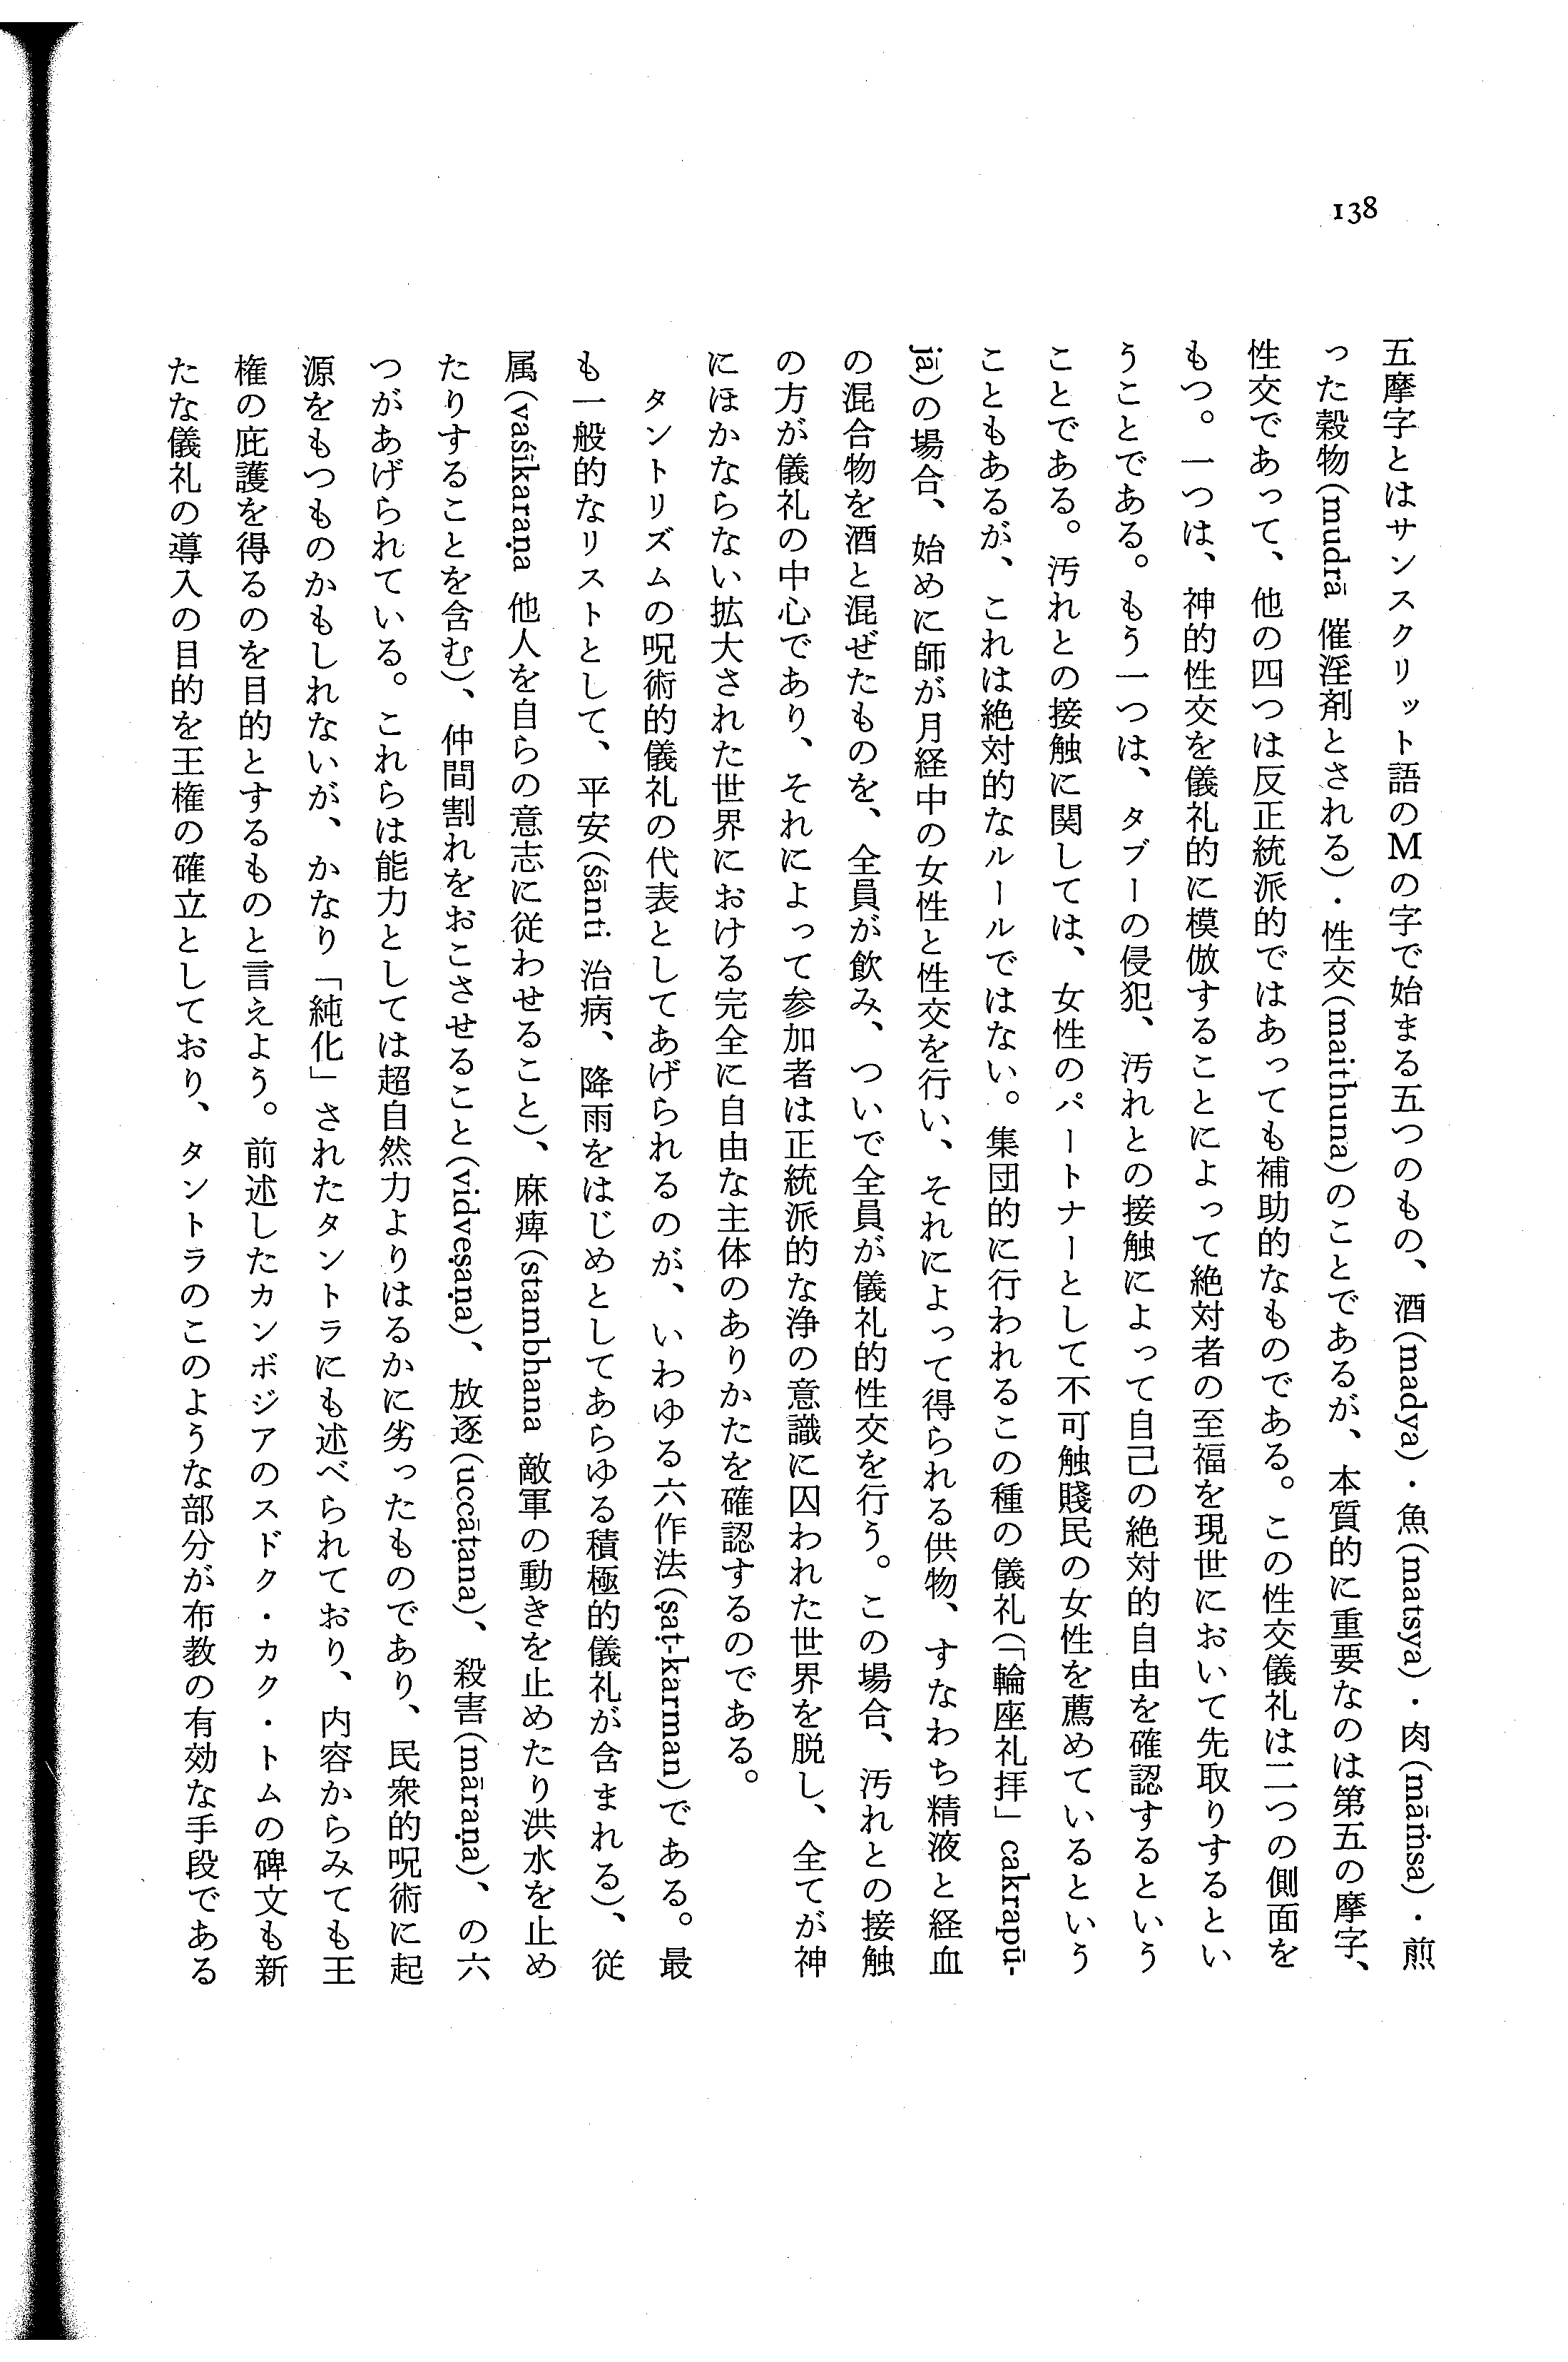 138
五摩字とはサンスクリット語のMの字で始まる五つのもの、酒(madya)・魚(matsya)・肉(māṁsa)・煎
った穀物(mudrā 催淫剤とされる)・性交(maithuna)のことであるが、本質的に重要なのは第五の摩字、
性交であって、他の四つは反正統派的ではあっても補助的なものである。この性交儀礼は二つの側面を
もつ。一つは、神的性交を儀礼的に模倣することによって絶対者の至福を現世において先取りするとい
うことである。もう一つは、タブーの侵犯、汚れとの接触によって自己の絶対的自由を確認するという
ことである。汚れとの接触に関しては、女性のパートナーとして不可触賤民の女性を薦めているという
こともあるが、これは絶対的なルールではない。集団的に行われるこの種の儀礼(「輪座礼拝」cakrapū-
jā)の場合、始めに師が月経中の女性と性交を行い、それによって得られる供物、すなわち精液と経血
の混合物を酒と混ぜたものを、全員が飲み、ついで全員が儀礼的性交を行う。この場合、汚れとの接触
の方が儀礼の中心であり、それによって参加者は正統派的な浄の意識に囚われた世界を脱し、全てが神
にほかならない拡大された世界における完全に自由な主体のありかたを確認するのである。
タントリズムの呪術的儀礼の代表としてあげられるのが、いわゆる六作法(ṣaṭ-karman)である。最
も一般的なリストとして、平安(śānti 治病、降雨をはじめとしてあらゆる積極的儀礼が含まれる)、従
属(vaśīkaraṇa 他人を自らの意志に従わせること)、麻痺(stambhana 敵軍の動きを止めたり洪水を止め
たりすることを含む)、仲間割れをおこさせること(vidveṣaṇa)、放逐(uccāṭana)、殺害(māraṇa)、の六
つがあげられている。これらは能力としては超自然力よりはるかに劣ったものであり、民衆的呪術に起
源をもつものかもしれないが、かなり「純化」されたタントラにも述べられており、内容からみても王
権の庇護を得るのを目的とするものと言えよう。前述したカンボジアのスドク・カク・トムの碑文も新
たな儀礼の導入の目的を王権の確立としており、タントラのこのような部分が布教の有効な手段である